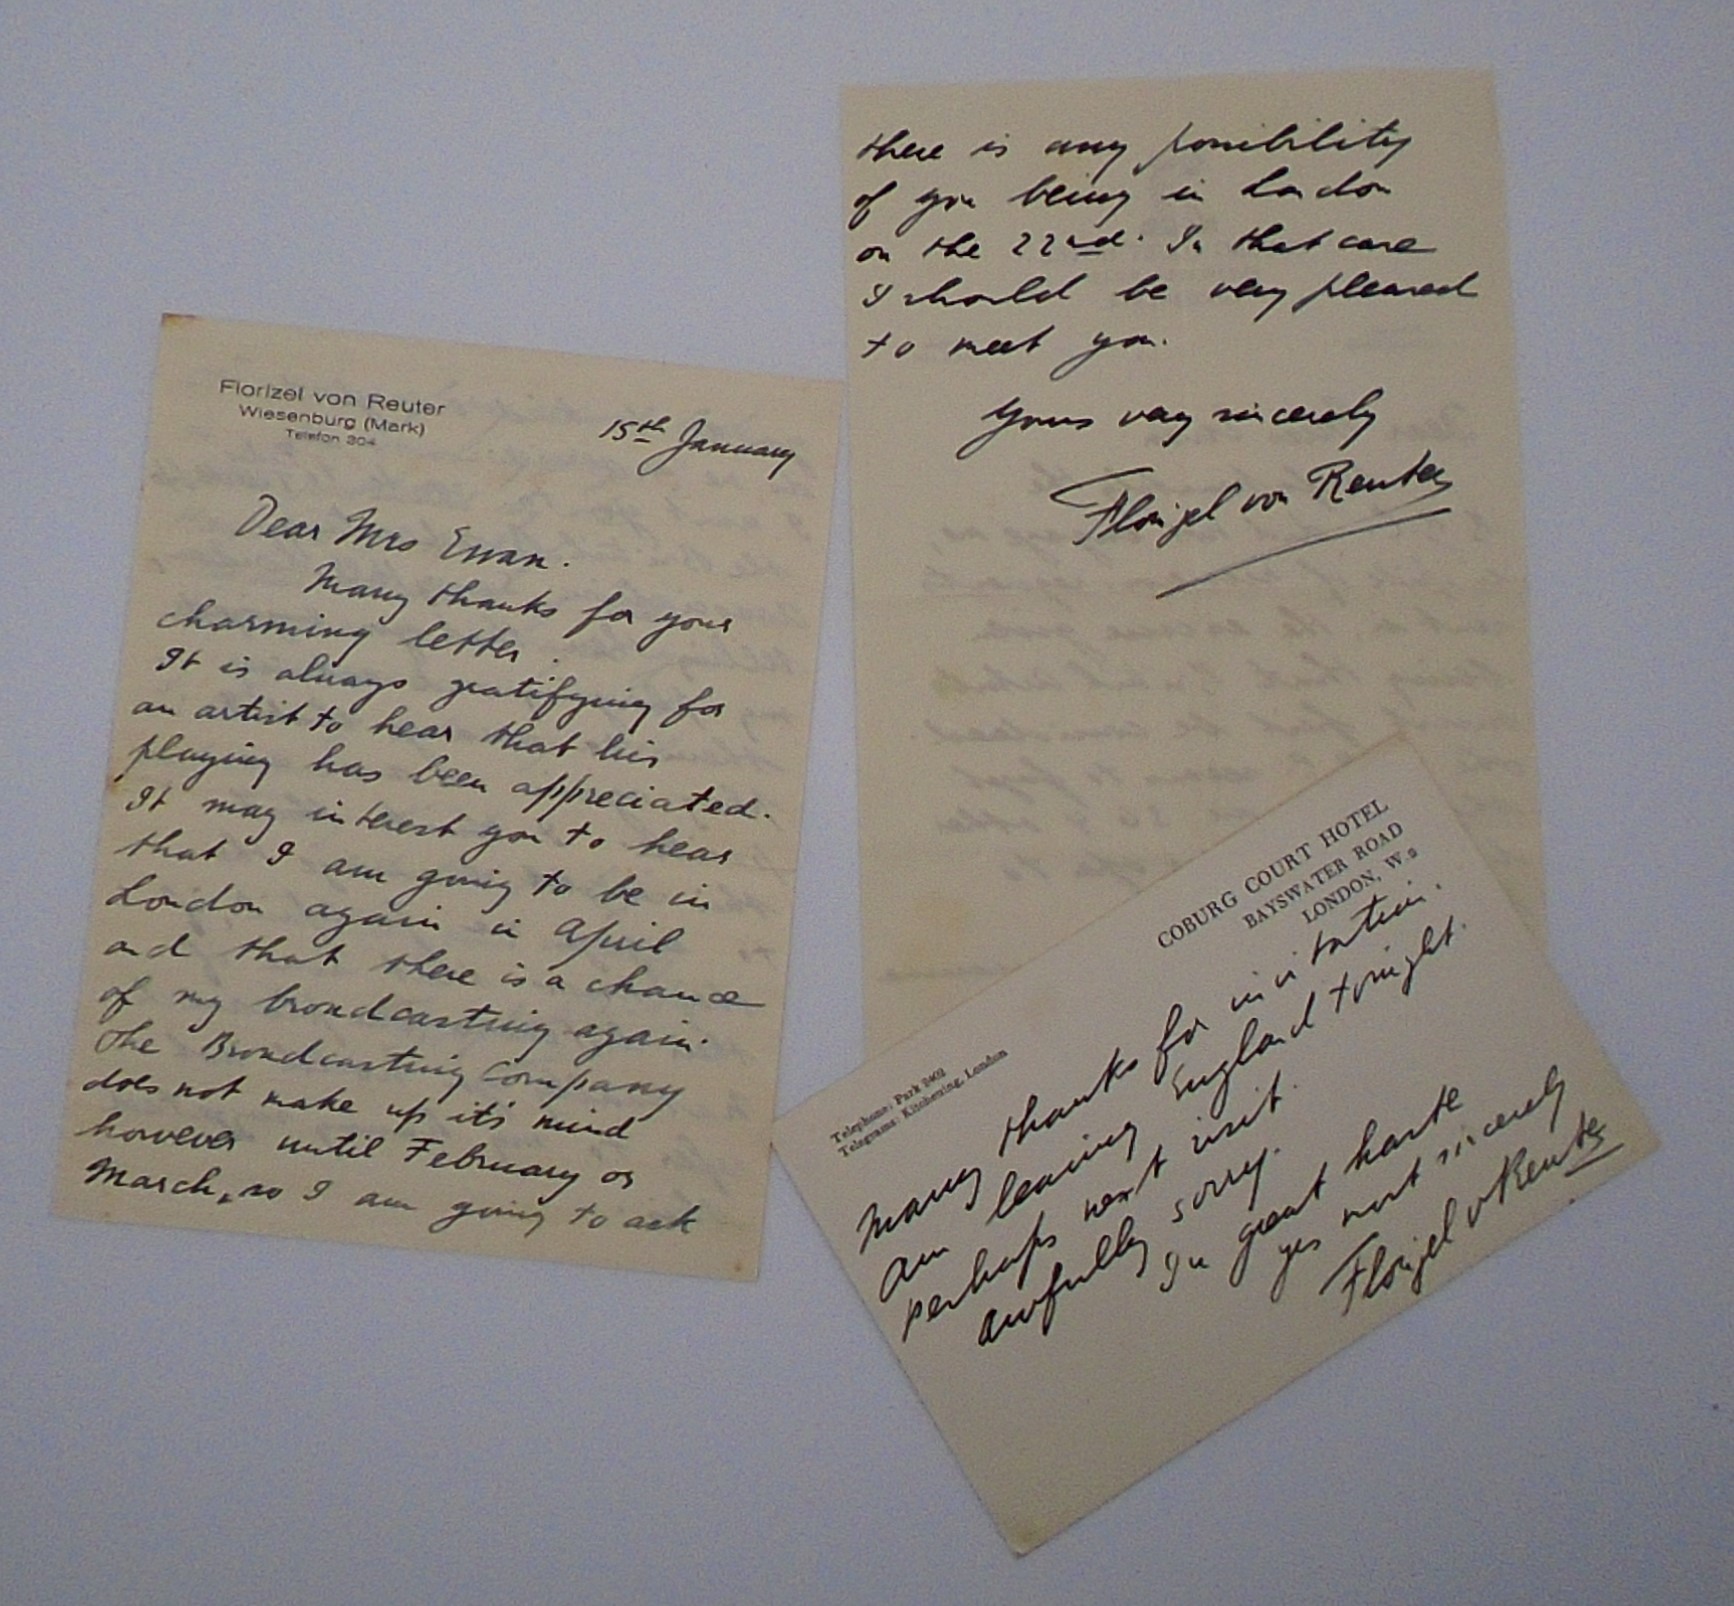 Florizel von Reuter
Wiesenburg (Mark)
Telefon 304
15th January
Dear Mrs Ewan.
Many thanks for your
charming letter.
It is always gratifying for
an artist to hear that his
playing has been appreciated.
It may interest you to hear
that I am going to be in
London again in April
and that there is a chance
of my broadcasting again.
The Broadcasting Company
does not make up it's mind
however until February or
March, so I am going to ask
there is any possibility
of you being in London
on the 22nd. In that case
I should be very pleased
to meet you.
Yours very sincerely
Florizel von Reuter
COBURG COURT HOTEL
BAYSWATER ROAD
LONDON, W.2
Telephone: Park 2402
Telegrams: Kitchening, London
Many thanks for invitation.
Am leaving England tonight.
perhaps next visit.
Awfully sorry.
In great haste
yrs most sincerely
Florizel v Reuter